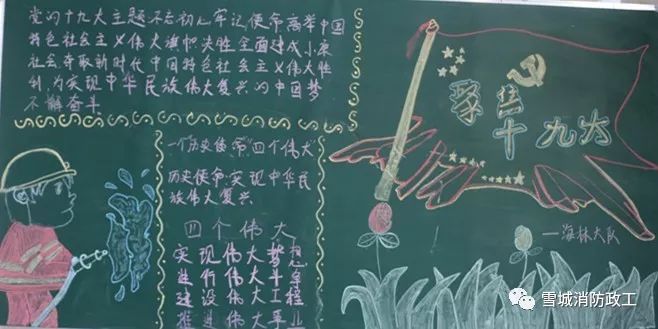 党的十九大主题不忘初心牢记使命高举中国
特色社会主义伟大旗帜决胜全面建成小康
社会夺取新时代中国特色社会主义伟大胜
利为实现中华民族伟大复兴的中国梦
不懈奋斗
一个历史使命"四个伟大"
历史使命:实现中华民
族伟大复兴
四个伟大
实现伟大梦想
进行伟大斗争
建设伟大工程
推进伟大事业
聚焦
十九大
—海林大队
雪城消防政工